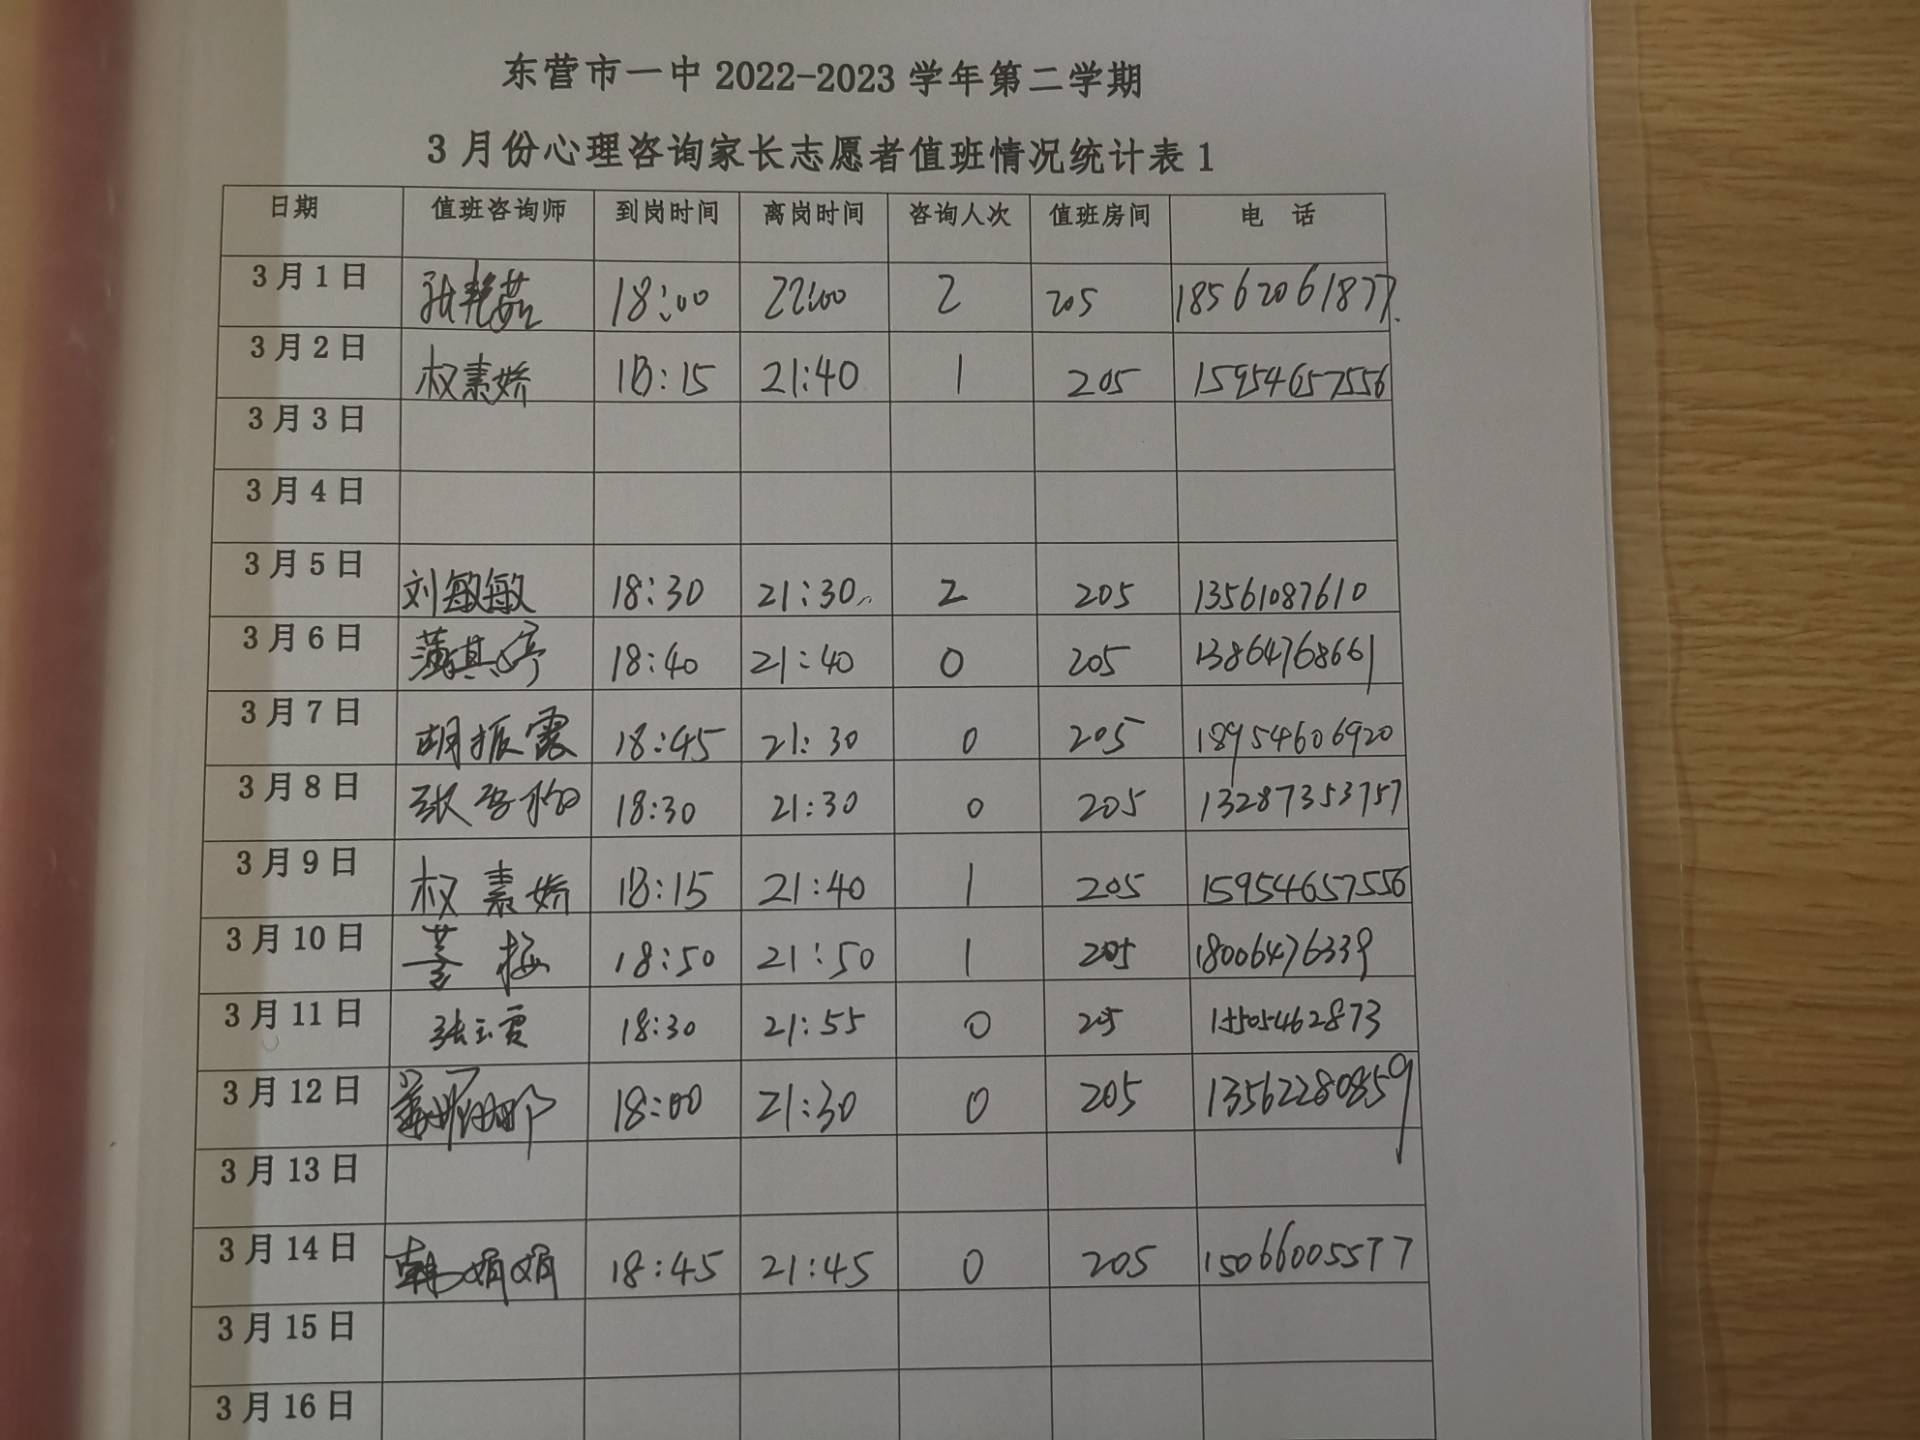 东营市一中 2022-2023 学年第二学期
3 月份心理咨询家长志愿者值班情况统计表 1
日期 值班咨询师 到岗时间 离岗时间 咨询人次 值班房间 电 话
3 月 1 日 张艳茹 18:00 22:00 2 205 18562061877.
3 月 2 日 权素娇 18:15 21:40 1 205 15954657556
3 月 3 日
3 月 4 日
3 月 5 日 刘敏敏 18:30 21:30 2 205 13561087610
3 月 6 日 18:40 21:40 0 205 13864768661
3 月 7 日 胡振霞 18:45 21:30 0 205 18954606920
3 月 8 日 18:30 21:30 0 205 13287353757
3 月 9 日 权素娇 18:15 21:40 1 205 15954657556
3 月 10 日 18:50 21:50 1 205 18006476339
3 月 11 日 张玉霞 18:30 21:55 0 205 15505462873
3 月 12 日 18:00 21:30 0 205 13562280859
3 月 13 日
3 月 14 日 韩娟娟 18:45 21:45 0 205 15066005577
3 月 15 日
3 月 16 日